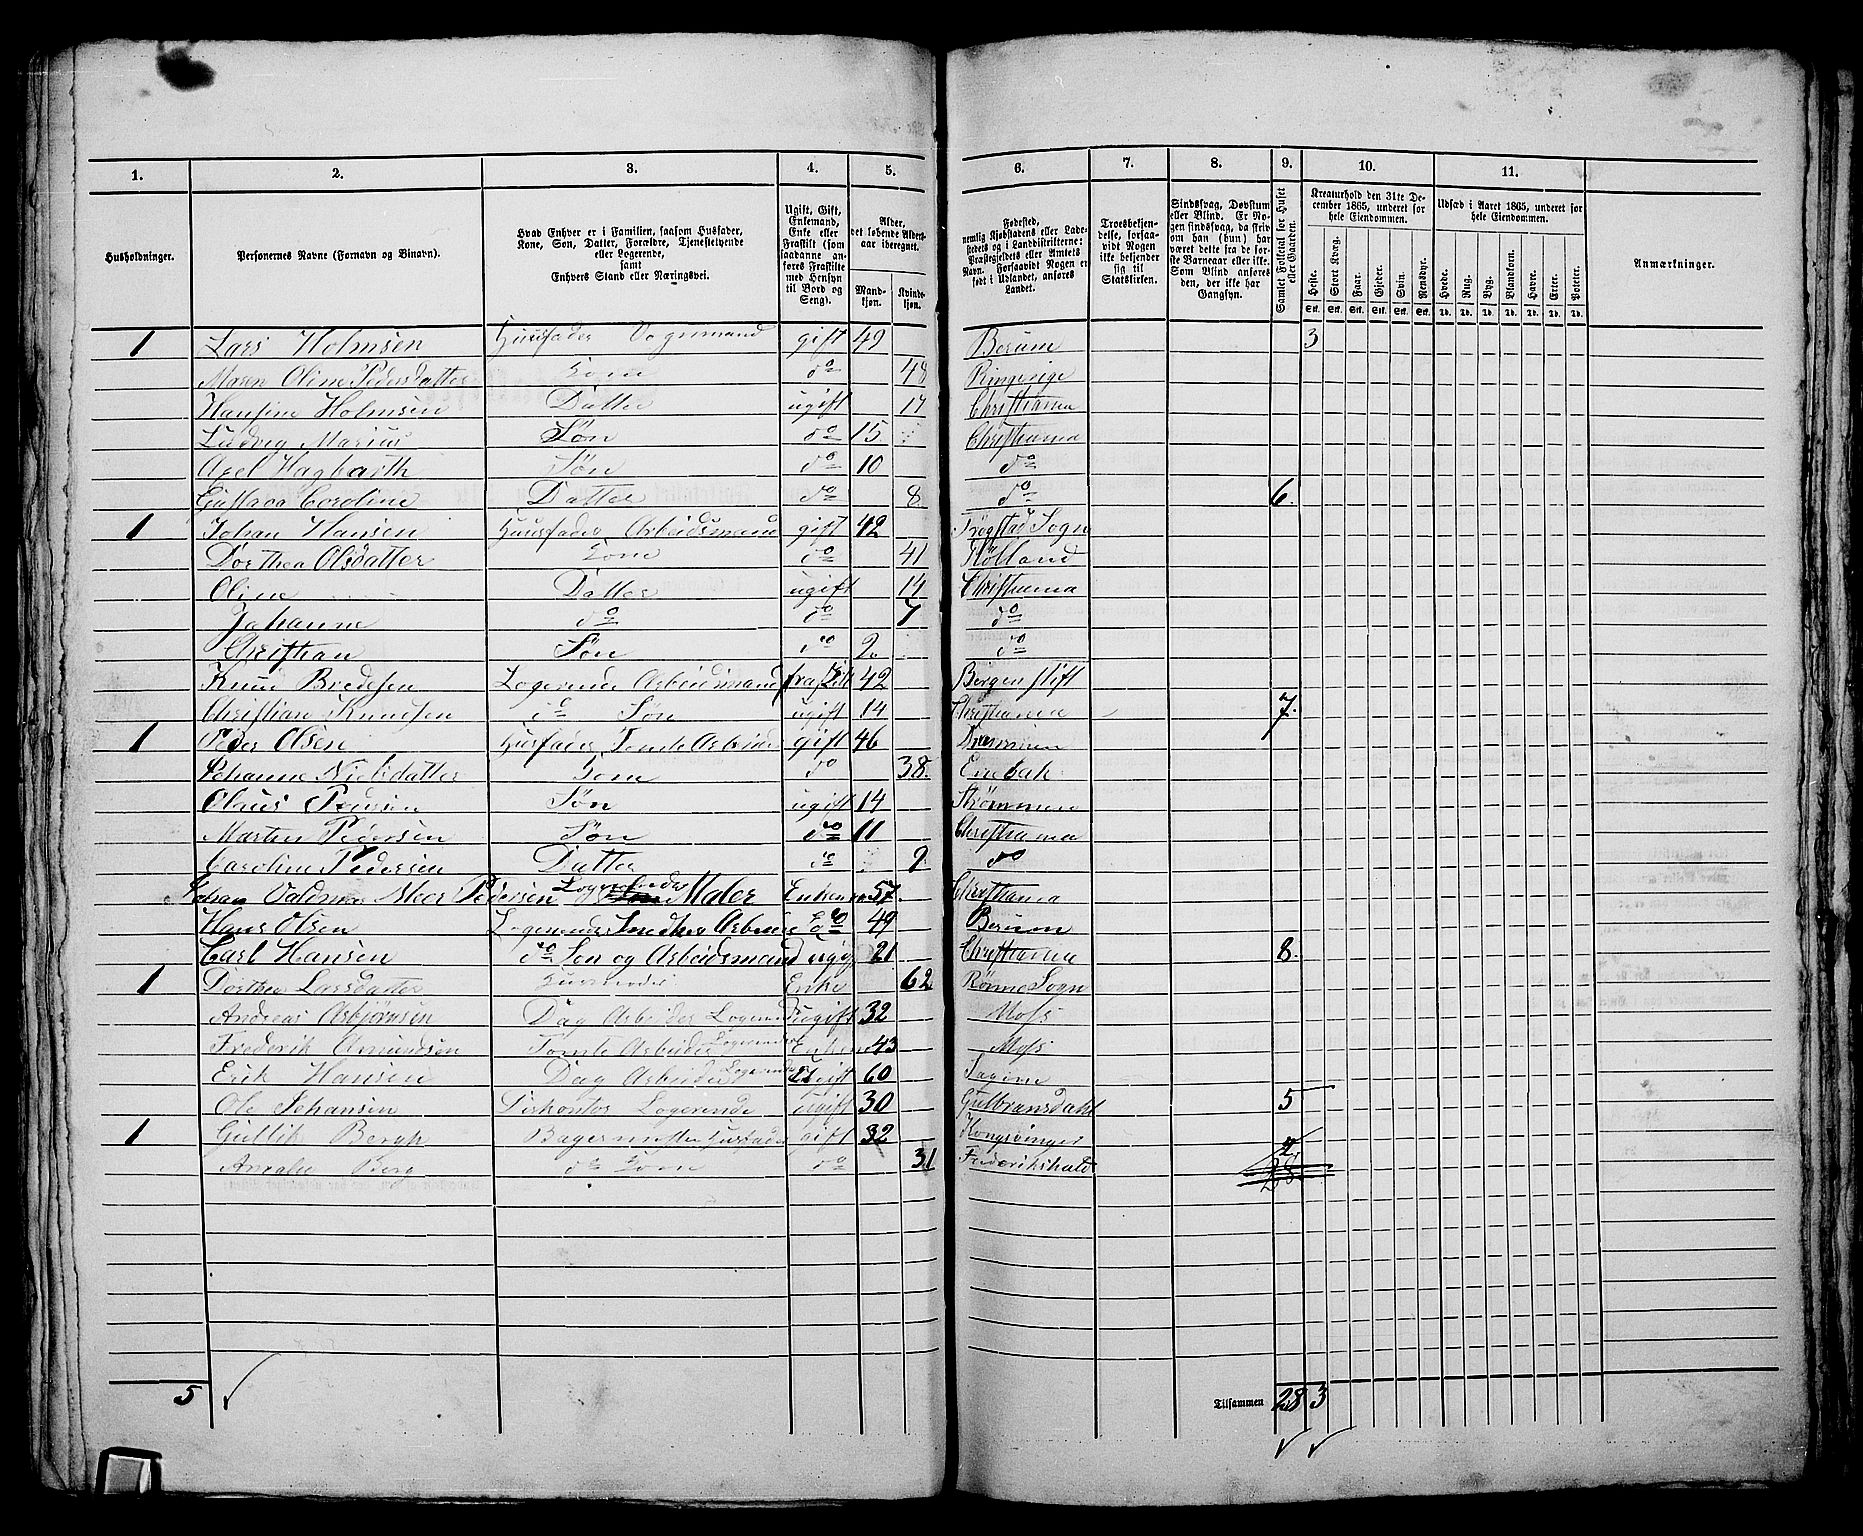 1. 2. 3. 4. 5. 6. 7. 8. 9. 10. 11.
Husholdninger.
Personernes Navne (Fornavn og Binavn).
Hvad Enhver er i Familien, saasom Husfader, Kone, Søn, Datter, Forældre, Tjenestetyende eller Logerende, samt Enhvers Stand eller Næringsvei.
Ugift, Gift, Enkemand, Enke eller Fraskilt (som saadanne anføres Fraskilte med Hensyn til Bord og Seng).
Alder, det løbende Aldersaar iberegnet.
Mandkjøn. Kvindekjøn.
Fødested, nemlig Kjøbstadens eller Ladestedets og i Landdistrikterne: Præstegjeldets eller Amtets Navn. Forsaavidt Nogen er født i Udlandet, anføres Landet.
Troesbekjendelse, forsaavidt Nogen ikke bekjender sig til Statskirken.
Sindssvag, Døvstum eller Blind. Er Nogen sindssvag, da skrives, om han (hun) har været dette fra de første Barneaar eller ikke. Som Blind anføres den, der ikke har Gangsyn.
Samlet Folketal for Huset eller Gaarden.
Kreaturhold den 31te December 1865, underet for hele Eiendommen.
Heste. Stort Kvæg. Faar. Gjeder. Svin. Rensdyr.
Stk. Stk. Stk. Stk. Stk. Stk.
Udsæd i Aaret 1865, underet for hele Eiendommen.
Hvede. Rug. Byg. Blandkorn. Havre. Erter. Poteter.
Td. Td. Td. Td. Td. Td. Td.
Anmærkninger.
1 Lars Holmsen Huusfader Vognmand gift 49 Berum 3
Maren Oline Pedersdatter Kone do 48 Ringerige
Hansine Holmsen Datter ugift 17 Christiania
Ludvig Marius Søn do 15 Christiania
Axel Hagbarth Søn do 10 do
Gustava Caroline Datter do 8 do 6.
1 Johan Hansen Huusfader Arbeidsmand gift 42 Trøgstad Sogn
Dorthea Olsdatter Kone do 41 HøLland
Oline Datter ugift 14 Christiania
Johanne do do 7 do
Christian Søn do 2. do
Knud Bredesen Logerende Arbeidsmand fraskilt 42 Bergen stift
Christian Knudsen do Søn ugift 14 Christiania 7.
1 Peder Olsen Husfader Tomte Arbeider gift 46 Drammen
Johanne Nielsdatter Kone do 38. Enebak
Olaus Pedersen Søn ugift 14 Strømmen
Martin Pedersen Søn do 11 Christiania
Caroline Pedersen Datter do 9 do
Johan Valdemar Meer Pedersen Logerende Maler Enkem 57. Christiania
Hans Olsen Logerende Smedhs Arbeide do 49 Berum
Carl Hansen do Søn og Arbeidsmand ugif 21 Christiania 8.
1 Dorthea Larsdatter Huusmoder Enke 62 Rømne Sogn
Andreas Asbjørnsen Dag Arbeider Logerende ugift 32 Moss
Frederik Amundsen Tomte Arbeider Logerende Enkem 43 Moss
Erik Hansen Dag Arbeider Logerende Ugift 60
Ole Johansen Logerende ugift 30 Gulbransdahl 5
1 Gullik Bergh Bagermester Husfader gift 32 Kongsvinger 2
Amalie Berg do Kone do 31 Frederikshald 28
5 Tilsammen 28 3